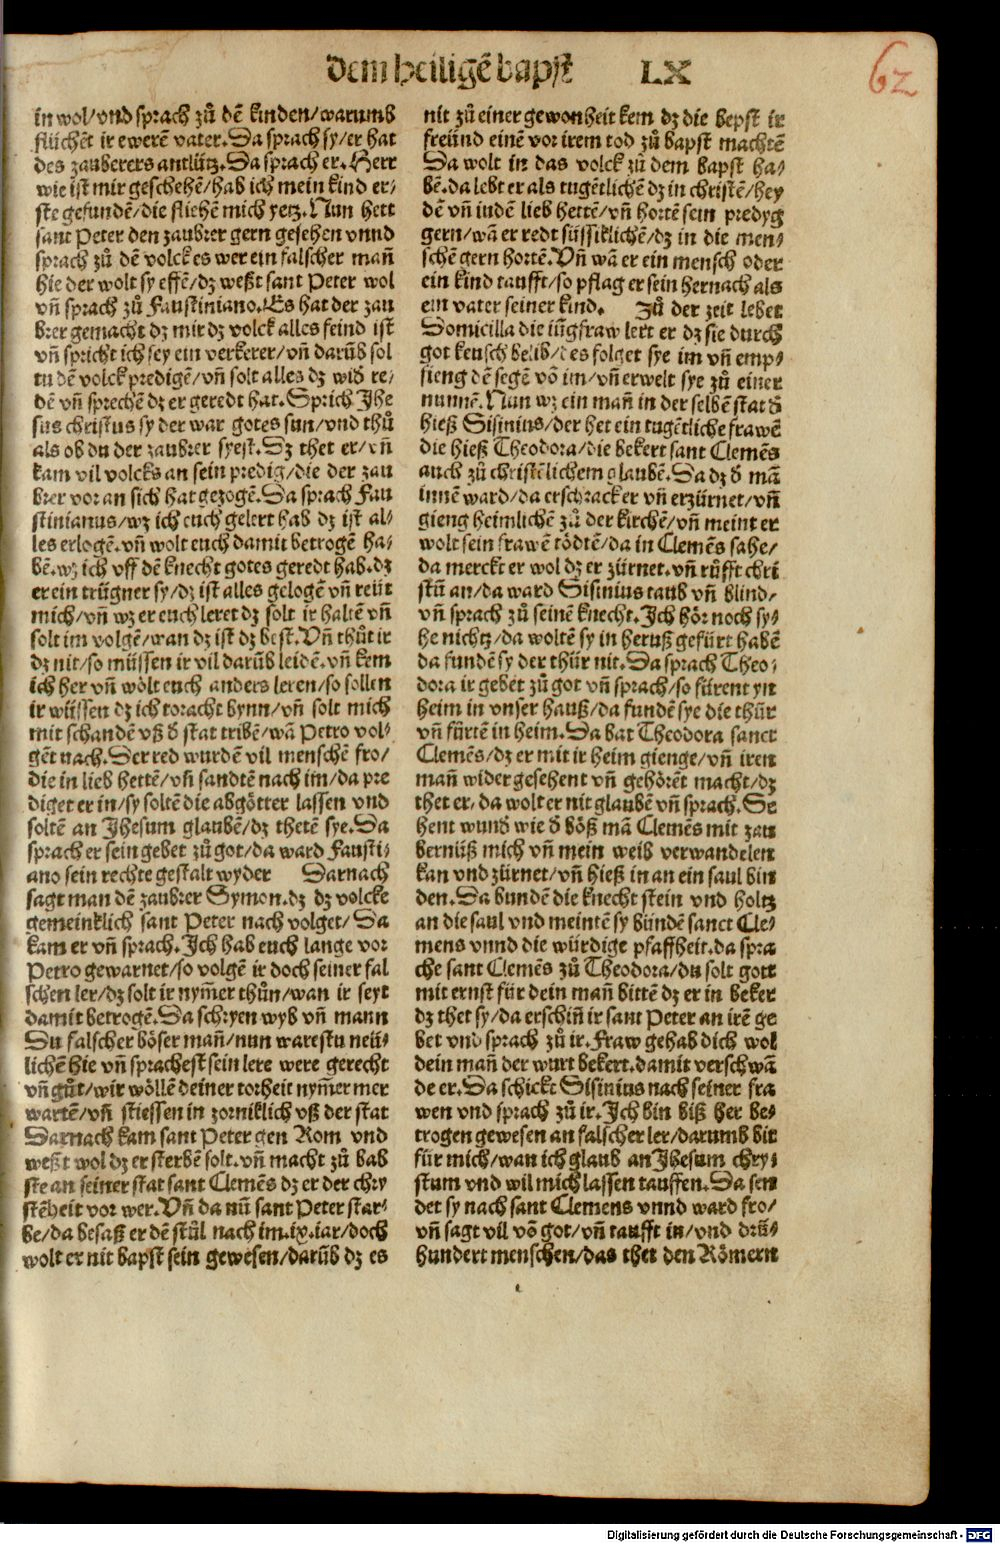 dem heiligẽ bapst LX
62
in wol/vnd sprach zů dẽ kinden/warumb
flüchẽt ir ewerẽ vater. Da sprach sy/er hat
des zauberers antlütz. Da sprach er. Herr
wie ist mir geschehẽ/hab ich mein kind er⸗
ste gefundẽ/die fliehẽ mich yetz. Nun hett
sant Peter den zaubrer gern gesehen vnnd
sprach zů dẽ volck es wer ein falscher mañ
hie der wolt sy effẽ/dz weßt sant Peter wol
vñ sprach zů Faustiniano. Es hat der zau
brer gemacht dz mir dz volck alles feind ist
vñ spricht ich sey ein verkerer/vñ darũb sol
tu dẽ volck predigẽ/vñ solt alles dz wid re⸗
dẽ vñ sprechẽ dz er geredt hat. Sprich Jhe
sus christus sy der war gotes sun/vnd thů
als ob du der zaubrer syest. Dz thet er/vñ
kam vil volcks an sein predig/die der zau
brer vor an sich hat gezogẽ. Da sprach Fau
stinianus/wz ich euch gelert hab dz ist al⸗
les erlogẽ. vñ wolt euch damit betrogẽ ha⸗
bẽ. wz ich vff dẽ knecht gotes geredt hab. dz
er ein trügner sy/dz ist alles gelogẽ vñ reüt
mich/vñ wz er euch leret dz solt ir haltẽ vñ
solt im volgẽ/wan dz ist dz best. Vñ thůt ir
dz nit/so müssen ir vil darũb leidẽ. vñ kem
ich her vñ wölt euch anders leren/so sollen
ir wüssen dz ich toracht bynn/vñ solt mich
mit schanden vß d̄ stat tribẽ/wã Petro vol⸗
gẽt nach. Der red wurdẽ vil menschẽ fro/
die in lieb hettẽ/vñ sandtẽ nach im/da pre
diget er in/sy soltẽ die abgötter lassen vnd
soltẽ an Jhesum glaubẽ/dz thetẽ sye. Da
sprach er sein gebet zů got/da ward Fausti⸗
ano sein rechte gestalt wyder Darnach
sagt man dẽ zaubrer Symon. dz dz volcke
gemeinklich sant Peter nach volget/Da
kam er vñ sprach. Ich hab euch lange vor
Petro gewarnet/so volgẽ ir doch seiner fal
schen ler/dz solt ir nym̃er thůn/wan ir seyt
damit betrogẽ. Da schryen wyb vñ mann
Du falscher böser mañ/nun warestu neü⸗
lichẽ hie vñ sprachest sein lere were gerecht
vñ gůt/wir wöllẽ deiner torheit nym̃er mer
wartẽ/vñ stiessen in zorniklich vß der stat
Darnach kam sant Peter gen Rom vnd
weßt wol dz er sterbẽ solt. vñ macht zů bab
ste an seiner stat sant Clemẽs dz er der chry
stẽheit vor wer. Vñ da nũ sant Peter star⸗
be/da besaß er dẽ stůl nach im. ix. iar/doch
wolt er nit bapst sein gewesen/darũb dz es
nit zů einer gewonheit kem dz die bepst ir
freünd einẽ vor irem tod zů bapst machtẽ
Da wolt in das volck zů dem bapst ha⸗
bẽ. da lebt er als tugẽtlichẽ dz in christẽ/hey
dẽ vñ iudẽ lieb hettẽ/vñ hortẽ sein predyg
gern/wã er redt süssiklichẽ/dz in die men⸗
schẽ gern hortẽ. Vñ wã er ein mensch oder
ein kind taufft/so pflag er sein hernach als
ein vater seiner kind. Zů der zeit lebet
Domicilla die iũgfraw lert er dz sie durch
got keusch belib/des folget sye im vñ emp⸗
fieng dẽ segẽ võ im/vñ erwelt sye zů einer
nunnẽ. Nun wz ein mañ in der selbẽ stat d̄
hieß Sisinius/der het ein tugẽtliche frawẽ
die hieß Theodora/die bekert sant Clemẽs
auch zů christẽlichem glaubẽ. Da dz d̄ mã
innẽ ward/da erschrack er vñ erzürnet/vñ
gieng heimlichẽ zů der kirchẽ/vñ meint er
wolt sein frawẽ tödtẽ/da in Clemẽs sahe/
da merckt er wol dz er zürnet. vñ růfft chri
stũ an/da ward Sisinius taub vñ blind/
vñ sprach zů seinẽ knecht. Ich hör noch sy⸗
he nichtz/da woltẽ sy in heruß gefürt habẽ
da fundẽ sy der thür nit. Da sprach Theo⸗
dora ir gebet zů got vñ sprach/so fürent yn
heim in vnser hauß/da fundẽ sye die thür
vñ fürtẽ in heim. Da bat Theodora sanct
Clemẽs/dz er mit ir heim gienge/vñ iren
mañ wider gesehent vñ gehörẽt macht/dz
thet er, da wolt er nit glaubẽ vñ sprach. Se
hent wund wie d̄ böß mã Clemẽs mit zau
bernüß mich vñ mein weib verwandelen
kan vnd zürnet/vñ hieß in an ein saul bin
den. Da bundẽ die knecht stein vnd holtz
an die saul vnd meintẽ sy bündẽ sanct Cle⸗
mens vnnd die würdige pfaffheit. da spra
che sant Clemẽs zů Theodora/du solt gott
mit ernst für dein mañ bittẽ dz er in beker
dz thet sy/da erschiñ ir sant Peter an irẽ ge
bet vnd sprach zů ir. Fraw gehab dich wol
dein mañ der wurt bekert. damit verschwã
de er. Da schickt Sisinius nach seiner fra
wen vnd sprach zů ir. Ich bin biß her be⸗
trogen gewesen an falscher ler/darumb bit
für mich/wan ich glaub an Jhesum chry⸗
stum vnd wil mich lassen tauffen. Da sen
det sy nach sant Clemens vnnd ward fro/
vñ sagt vil võ got/vñ taufft in/vnd drü⸗
hundert menschen/das thet den Römern
Digitalisierung gefördert durch die Deutsche Forschungsgemeinschaft - DFG